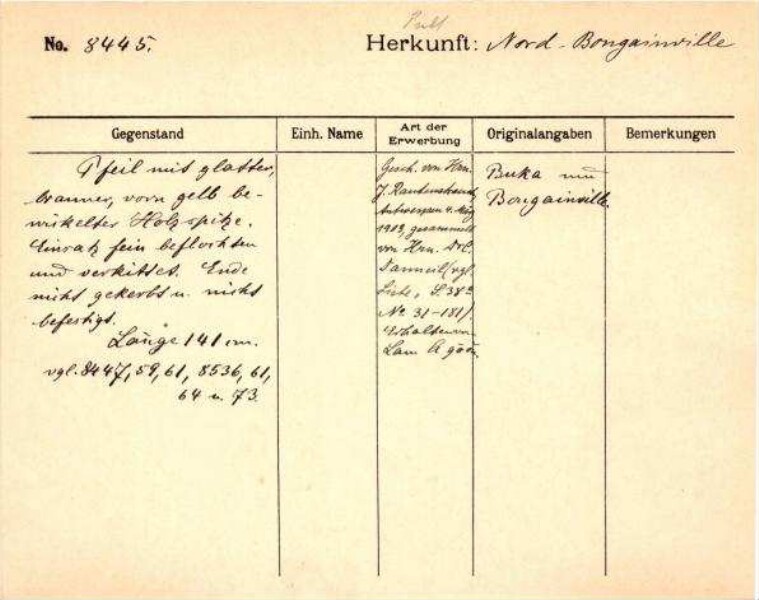 No. 8445.
Herkunft: Nord-Bougainville
Gegenstand
Einh. Name
Art der Erwerbung
Originalangaben
Bemerkungen
Pfeil mit glatter,
brauner, vorn gelb be-
wickelter Holzspitze.
Einsatz fein beflochten
und verkittet. Ende
nicht gekerbt u. nicht
befestigt.
Länge 141 cm.
vgl. 8447, 59, 61, 8536, 61,
64 u. 73.
Gesch. von Hrn.
J. Rautenstrauch,
Antwerpen 4. März
1908, gesammelt
von Hrn.
(vgl.
Liste, S. 38a
No 31-181).
Erhalten von
Buka und
Bougainville.